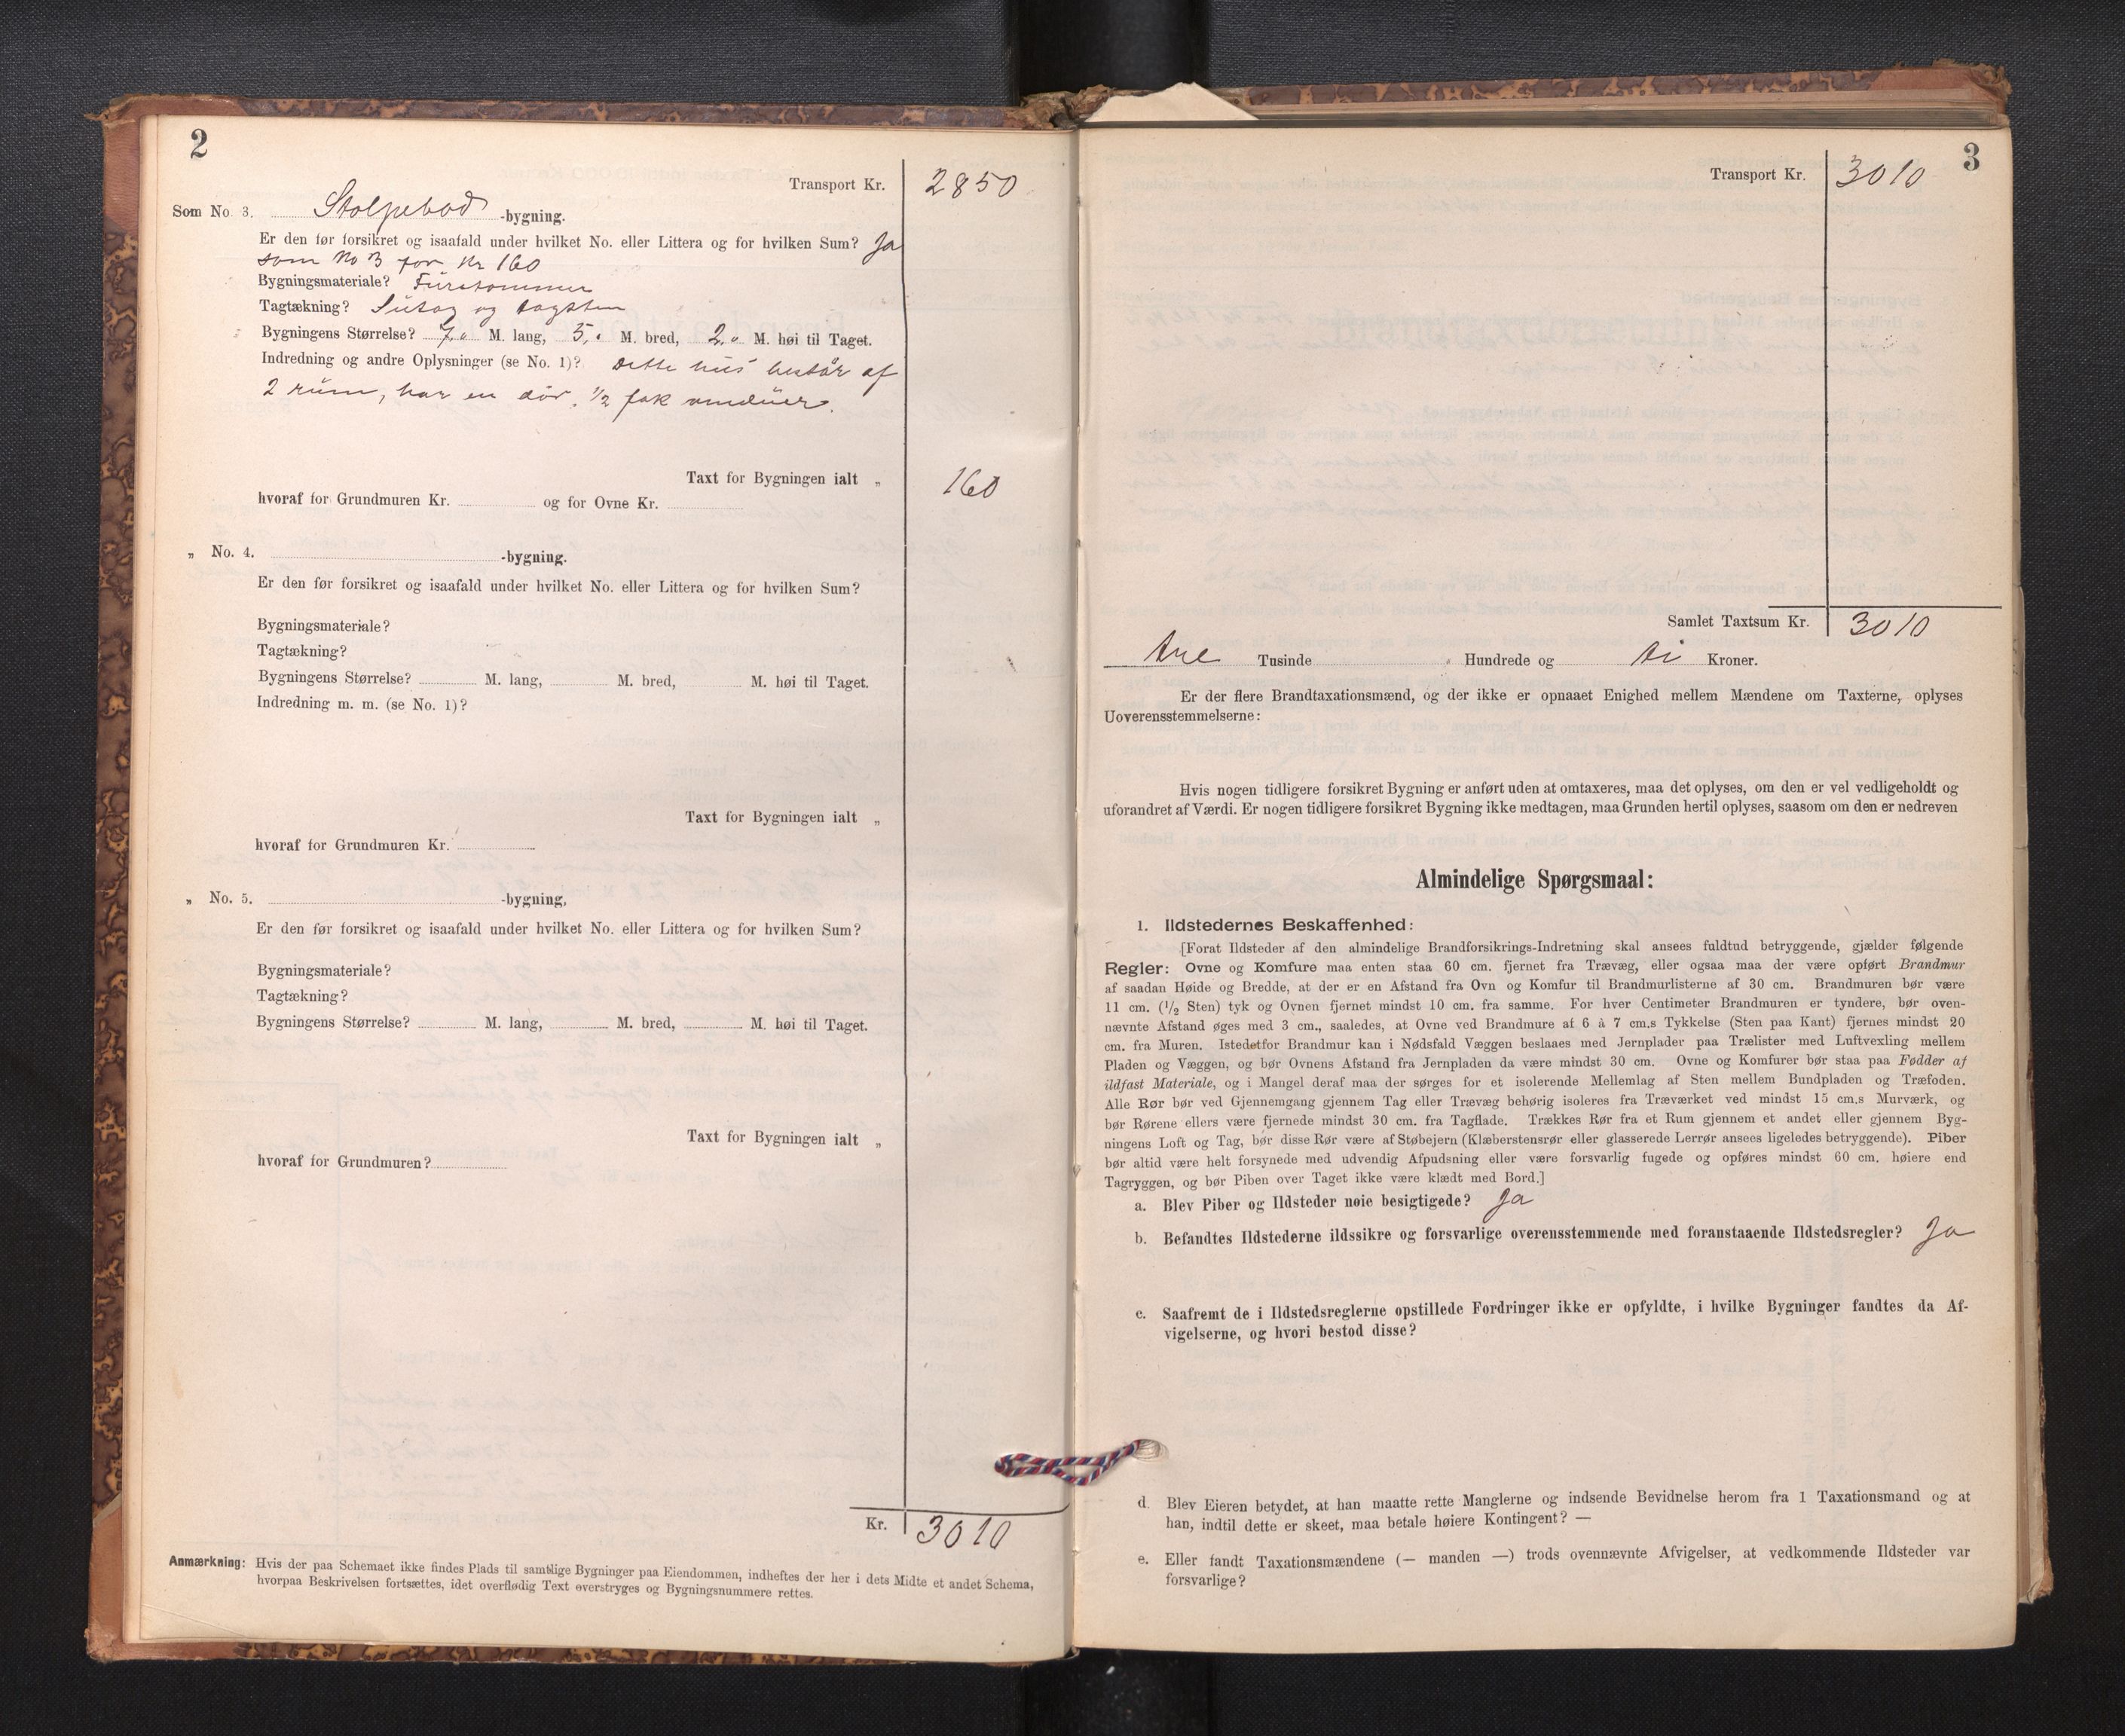 2
Transport Kr. 2850
Som No. 3. Stolpebod -bygning.
Er den før forsikret og isaafald under hvilket No. eller Littera og for hvilken Sum? Ja
som No 3 for Kr 160
Bygningsmateriale? Furutømmer
Tagtækning? Sutag og tagsten
Bygningens Størrelse? 7,0 M. lang, 5,0 M. bred, 2,0 M. høi til Taget.
Indredning og andre Oplysninger (se No. 1)? Dette hus består af
2 rum, har en dör, 1/2 fak vinduer.
Taxt for Bygningen ialt „ 160
hvoraf for Grundmuren Kr. og for Ovne Kr.
„ No. 4. -bygning.
Er den før forsikret og isaafald under hvilket No. eller Littera og for hvilken Sum?
Bygningsmateriale?
Tagtækning?
Bygningens Størrelse? M. lang, M. bred, M. høi til Taget.
Indredning m. m. (se No. 1)?
Taxt for Bygningen ialt „
hvoraf for Grundmuren Kr.
„ No. 5. -bygning.
Er den før forsikret og isaafald under hvilket No. eller Littera og for hvilken Sum?
Bygningsmateriale?
Tagtækning?
Bygningens Størrelse? M. lang, M. bred, M. høi til Taget.
Taxt for Bygningen ialt „
hvoraf for Grundmuren?
Kr. 3010
Anmærkning: Hvis der paa Schemaet ikke findes Plads til samtlige Bygninger paa Eiendommen, indheftes der her i dets Midte et andet Schema,
hvorpaa Beskrivelsen fortsættes, idet overflødig Text overstryges og Bygningsnummere rettes.
3
Transport Kr. 3010
Samlet Taxtsum Kr. 3010
tre Tusinde Hundrede og ti Kroner.
Er der flere Brandtaxationsmænd, og der ikke er opnaaet Enighed mellem Mændene om Taxterne, oplyses
Uoverensstemmelserne:
Hvis nogen tidligere forsikret Bygning er anført uden at omtaxeres, maa det oplyses, om den er vel vedligeholdt og
uforandret af Værdi. Er nogen tidligere forsikret Bygning ikke medtagen, maa Grunden hertil oplyses, saasom om den er nedreven
Almindelige Spørgsmaal:
1. Ildstedernes Beskaffenhed:
[Forat Ildsteder af den almindelige Brandforsikrings-Indretning skal ansees fuldtud betryggende, gjælder følgende
Regler: Ovne og Komfure maa enten staa 60 cm. fjernet fra Trævæg, eller ogsaa maa der være opført Brandmur
af saadan Høide og Bredde, at der er en Afstand fra Ovn og Komfur til Brandmurlisterne af 30 cm. Brandmuren bør være
11 cm. (1/2 Sten) tyk og Ovnen fjernet mindst 10 cm. fra samme. For hver Centimeter Brandmuren er tyndere, bør oven-
nævnte Afstand øges med 3 cm., saaledes, at Ovne ved Brandmure af 6 à 7 cm.s Tykkelse (Sten paa Kant) fjernes mindst 20
cm. fra Muren. Istedetfor Brandmur kan i Nødsfald Væggen beslaaes med Jernplader paa Trælister med Luftvexling mellem
Pladen og Væggen, og bør Ovnens Afstand fra Jernpladen da være mindst 30 cm. Ovne og Komfurer bør staa paa Fødder af
ildfast Materiale, og i Mangel deraf maa der sørges for et isolerende Mellemlag af Sten mellem Bundpladen og Træfoden.
Alle Rør bør ved Gjennemgang gjennem Tag eller Trævæg behørig isoleres fra Træværket ved mindst 15 cm.s Murværk, og
bør Rørene ellers være fjernede mindst 30 cm. fra Tagflade. Trækkes Rør fra et Rum gjennem et andet eller gjennem Byg-
ningens Loft og Tag, bør disse Rør være af Støbejern (Klæberstensrør eller glasserede Lerrør ansees ligeledes betryggende). Piber
bør altid være helt forsynede med udvendig Afpudsning eller være forsvarlig fugede og opføres mindst 60 cm. høiere end
Tagryggen, og bør Piben over Taget ikke være klædt med Bord.]
a. Blev Piber og Ildsteder nøie besigtigede? Ja
b. Befandtes Ildstederne ildssikre og forsvarlige overensstemmende med foranstaaende Ildstedsregler? Ja
c. Saafremt de i Ildstedsreglerne opstillede Fordringer ikke er opfyldte, i hvilke Bygninger fandtes da Af-
vigelserne, og hvori bestod disse?
d. Blev Eieren betydet, at han maatte rette Manglerne og indsende Bevidnelse herom fra 1 Taxationsmand og at
han, indtil dette er skeet, maa betale høiere Kontingent? —
e. Eller fandt Taxationsmændene (— manden —) trods ovennævnte Afvigelser, at vedkommende Ildsteder var
forsvarlige?